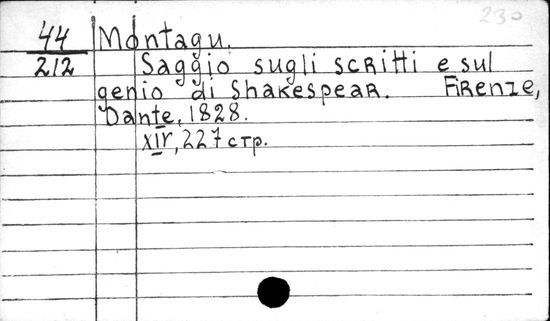 230
44 Montagu.
212 Saggio sugli scritti e sul
genio di Shakespear. Firenze,
Dante, 1828.
XIV, 227 стр.